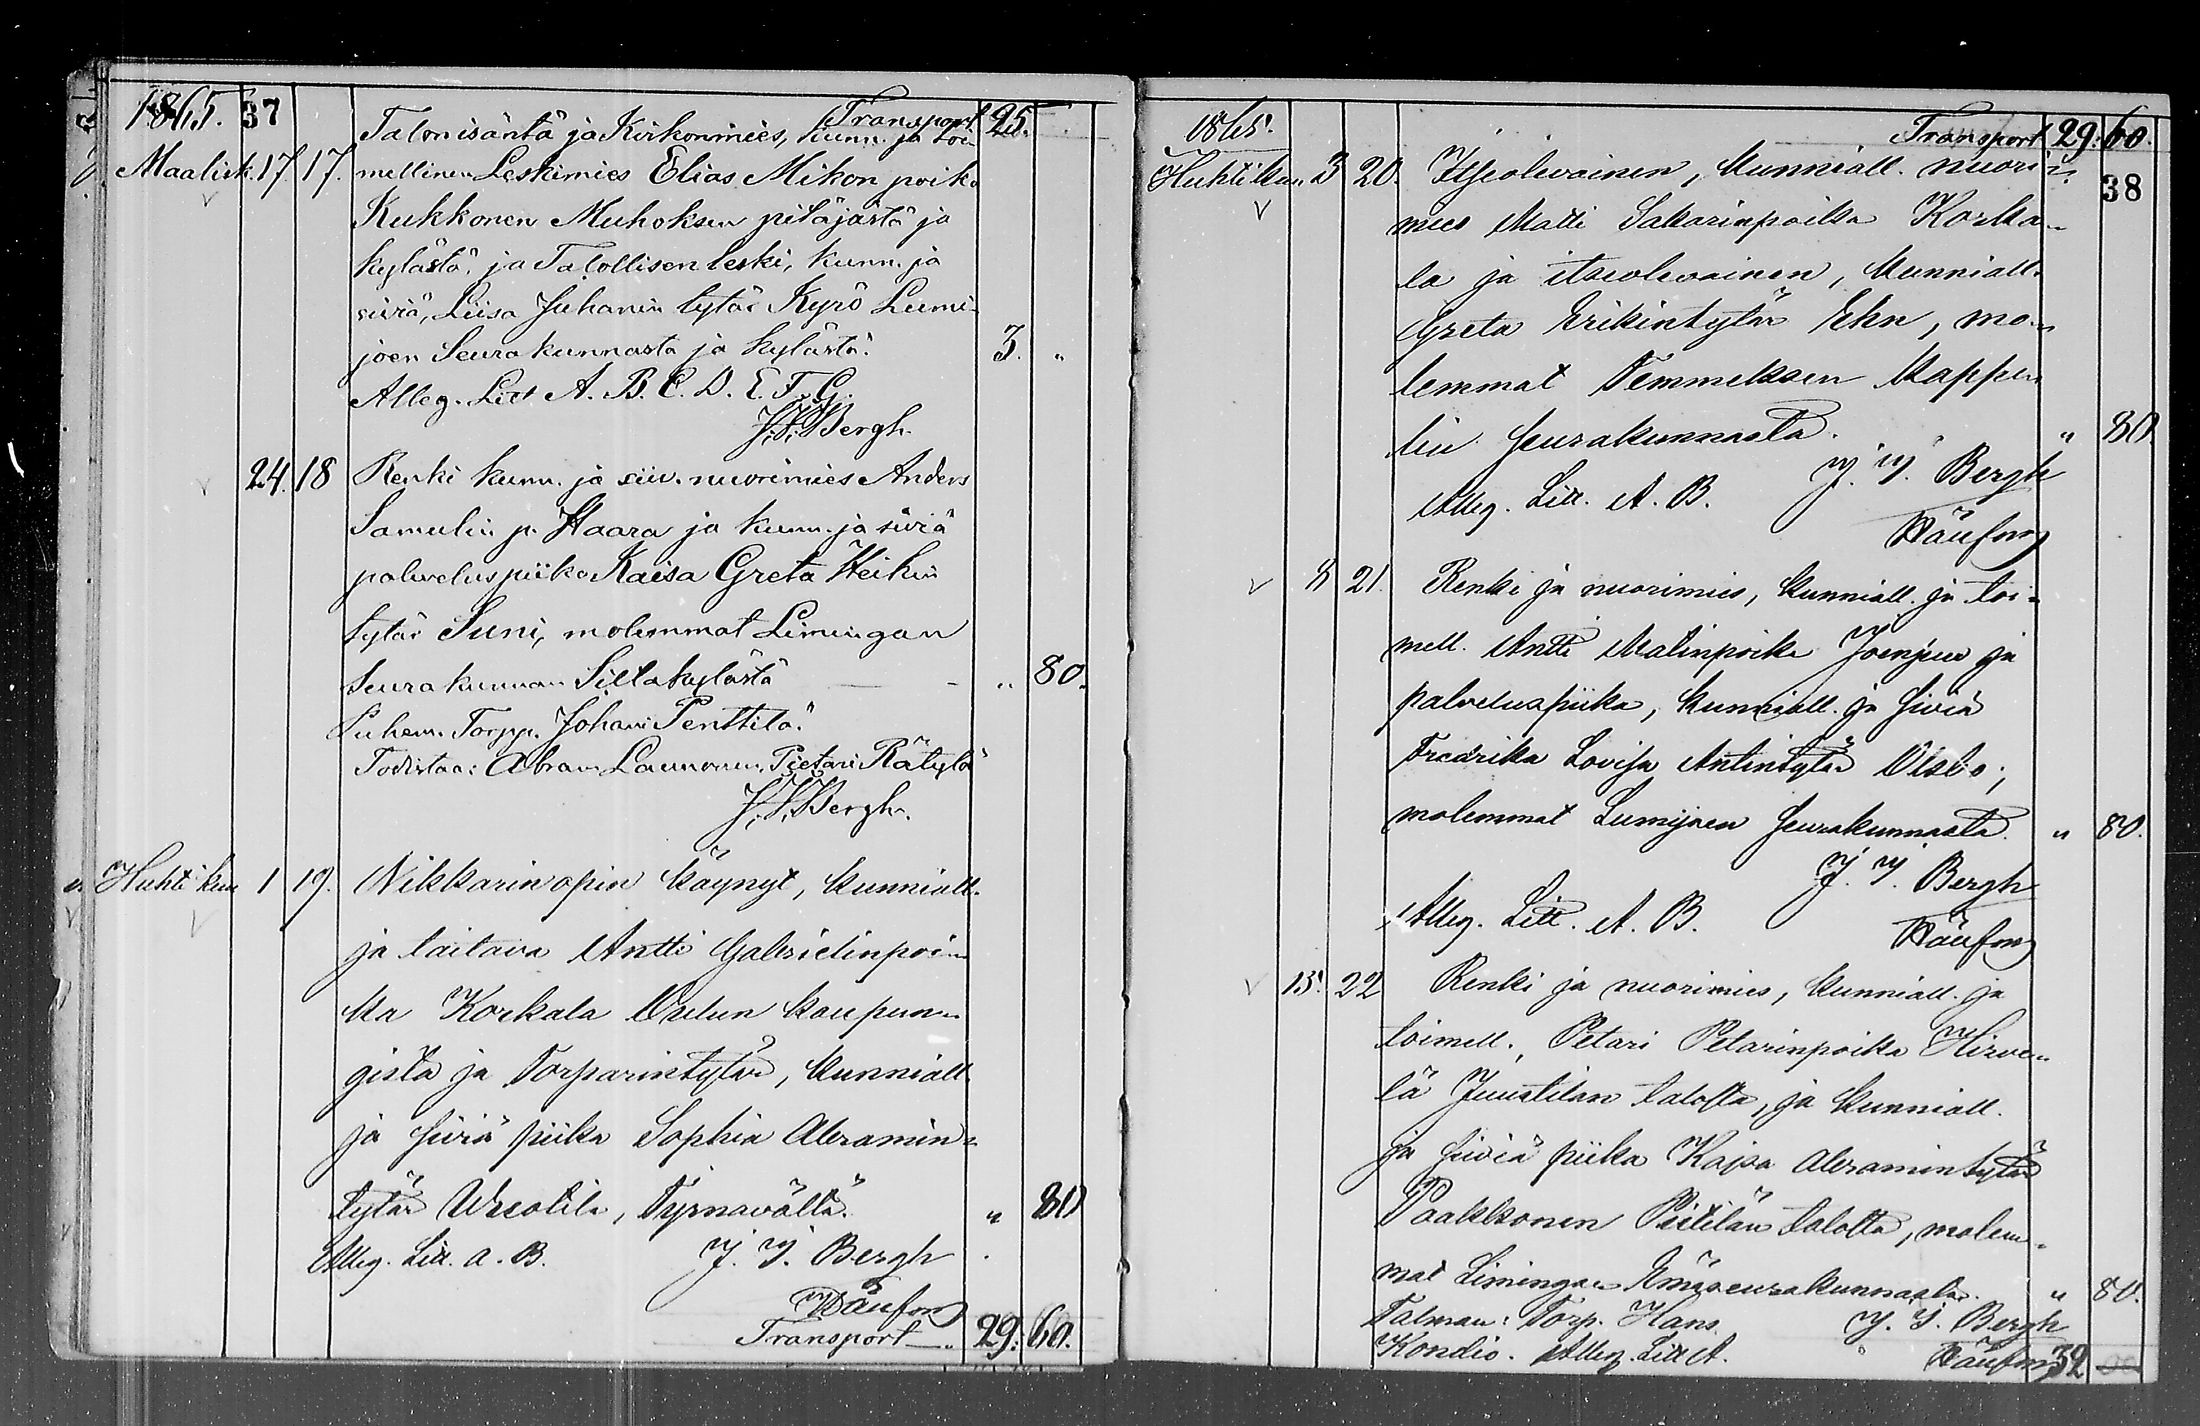 1865. 37 Transport 25.
Talonisäntä ja Kirkonmies, kunn. ja toi-
Maalisk. 17. 17. mellinen Leskimies Elias Mikon poika
Kukkonen Muhoksen pitäjästä ja
kylästä, ja Talollisen leski, kunn. ja
siviä, Liisa Juhanin tytär Kyrö Lumi-
joen Seurakunnasta ja kylästä. 3. "
Alleg. Litt A. B. C. D. E. F. G.
J. V. Bergh.
24. 18 Renki kunn. ja siiv. nuorimies Anders
Samulin p. Haara ja kunn. ja siviä
palveluspiika Kaisa Greta Heikin
tytär Suni, molemmat Limingan
Seurakunnan Siltakylästä - - " 80.
Puhem. Torpp. Johani Penttilä.
Todistaa: Abram Launonen, Pietari Rätylä
J. V. Bergh.
Huhtikuu 1 19. Nikkarinopin käynyt, kunniall.
ja taitava Antti Gabrielinpoi-
ka Korkala Oulun kaupun-
gista ja Torparintytär, kunniall.
ja siviä piika Sophia Abramin-
tytär , Tyrnävältä. " 80
Alleg. Litt. a. B. J. V. Bergh
Transport " 29. 60.
1865. Transport 29. 60.
Huhtikuu 3 20. Itseolevainen, kunniall. nuori- 38
mies Matti Sakarinpoika Korka-
la ja itseolevainen, kunniall.
Greta Erikintytär Ehn, mo-
lemmat Temmeksen Kappe-
lin seurakunnasta. " 80
J. V. Bergh
Alleg. Litt. A. B.
8 21. Renki ja nuorimies, kunniall. ja toi-
mell. Antti Matinpoika ja
palveluspiika, kunniall. ja siviä
Fredrika Lovisa Antintytär ;
molemmat Lumijoen seurakunnasta. " 80.
J. V. Bergh
Alleg. Litt. A. B.
15. 22 Renki ja nuorimies, kunniall. ja
toimell., Petari Petarinpoika Hirve-
lä Juustilan talosta, ja kunniall.
ja siviä piika Kajsa Abramintytär
Paakkonen Piitilän talosta, molem-
mat Limingan Emäseurakunnasta. " 80.
Talman: Torp. Hans J. V. Bergh
Kondio. Alleg. Litt A. 32